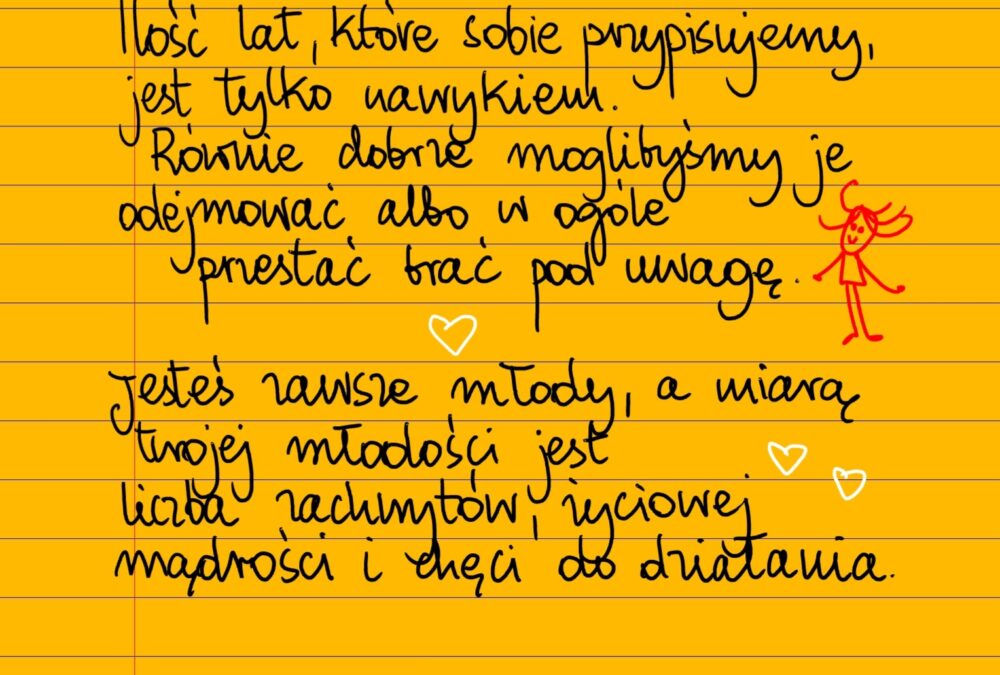 Ilość lat, które sobie przypisujemy,
jest tylko nawykiem.
Równie dobrze moglibyśmy je
odejmować albo w ogóle
przestać brać pod uwagę.
Jesteś zawsze młody, a miarą
twojej młodości jest
liczba zachwytów, życiowej
mądrości i chęci do działania.